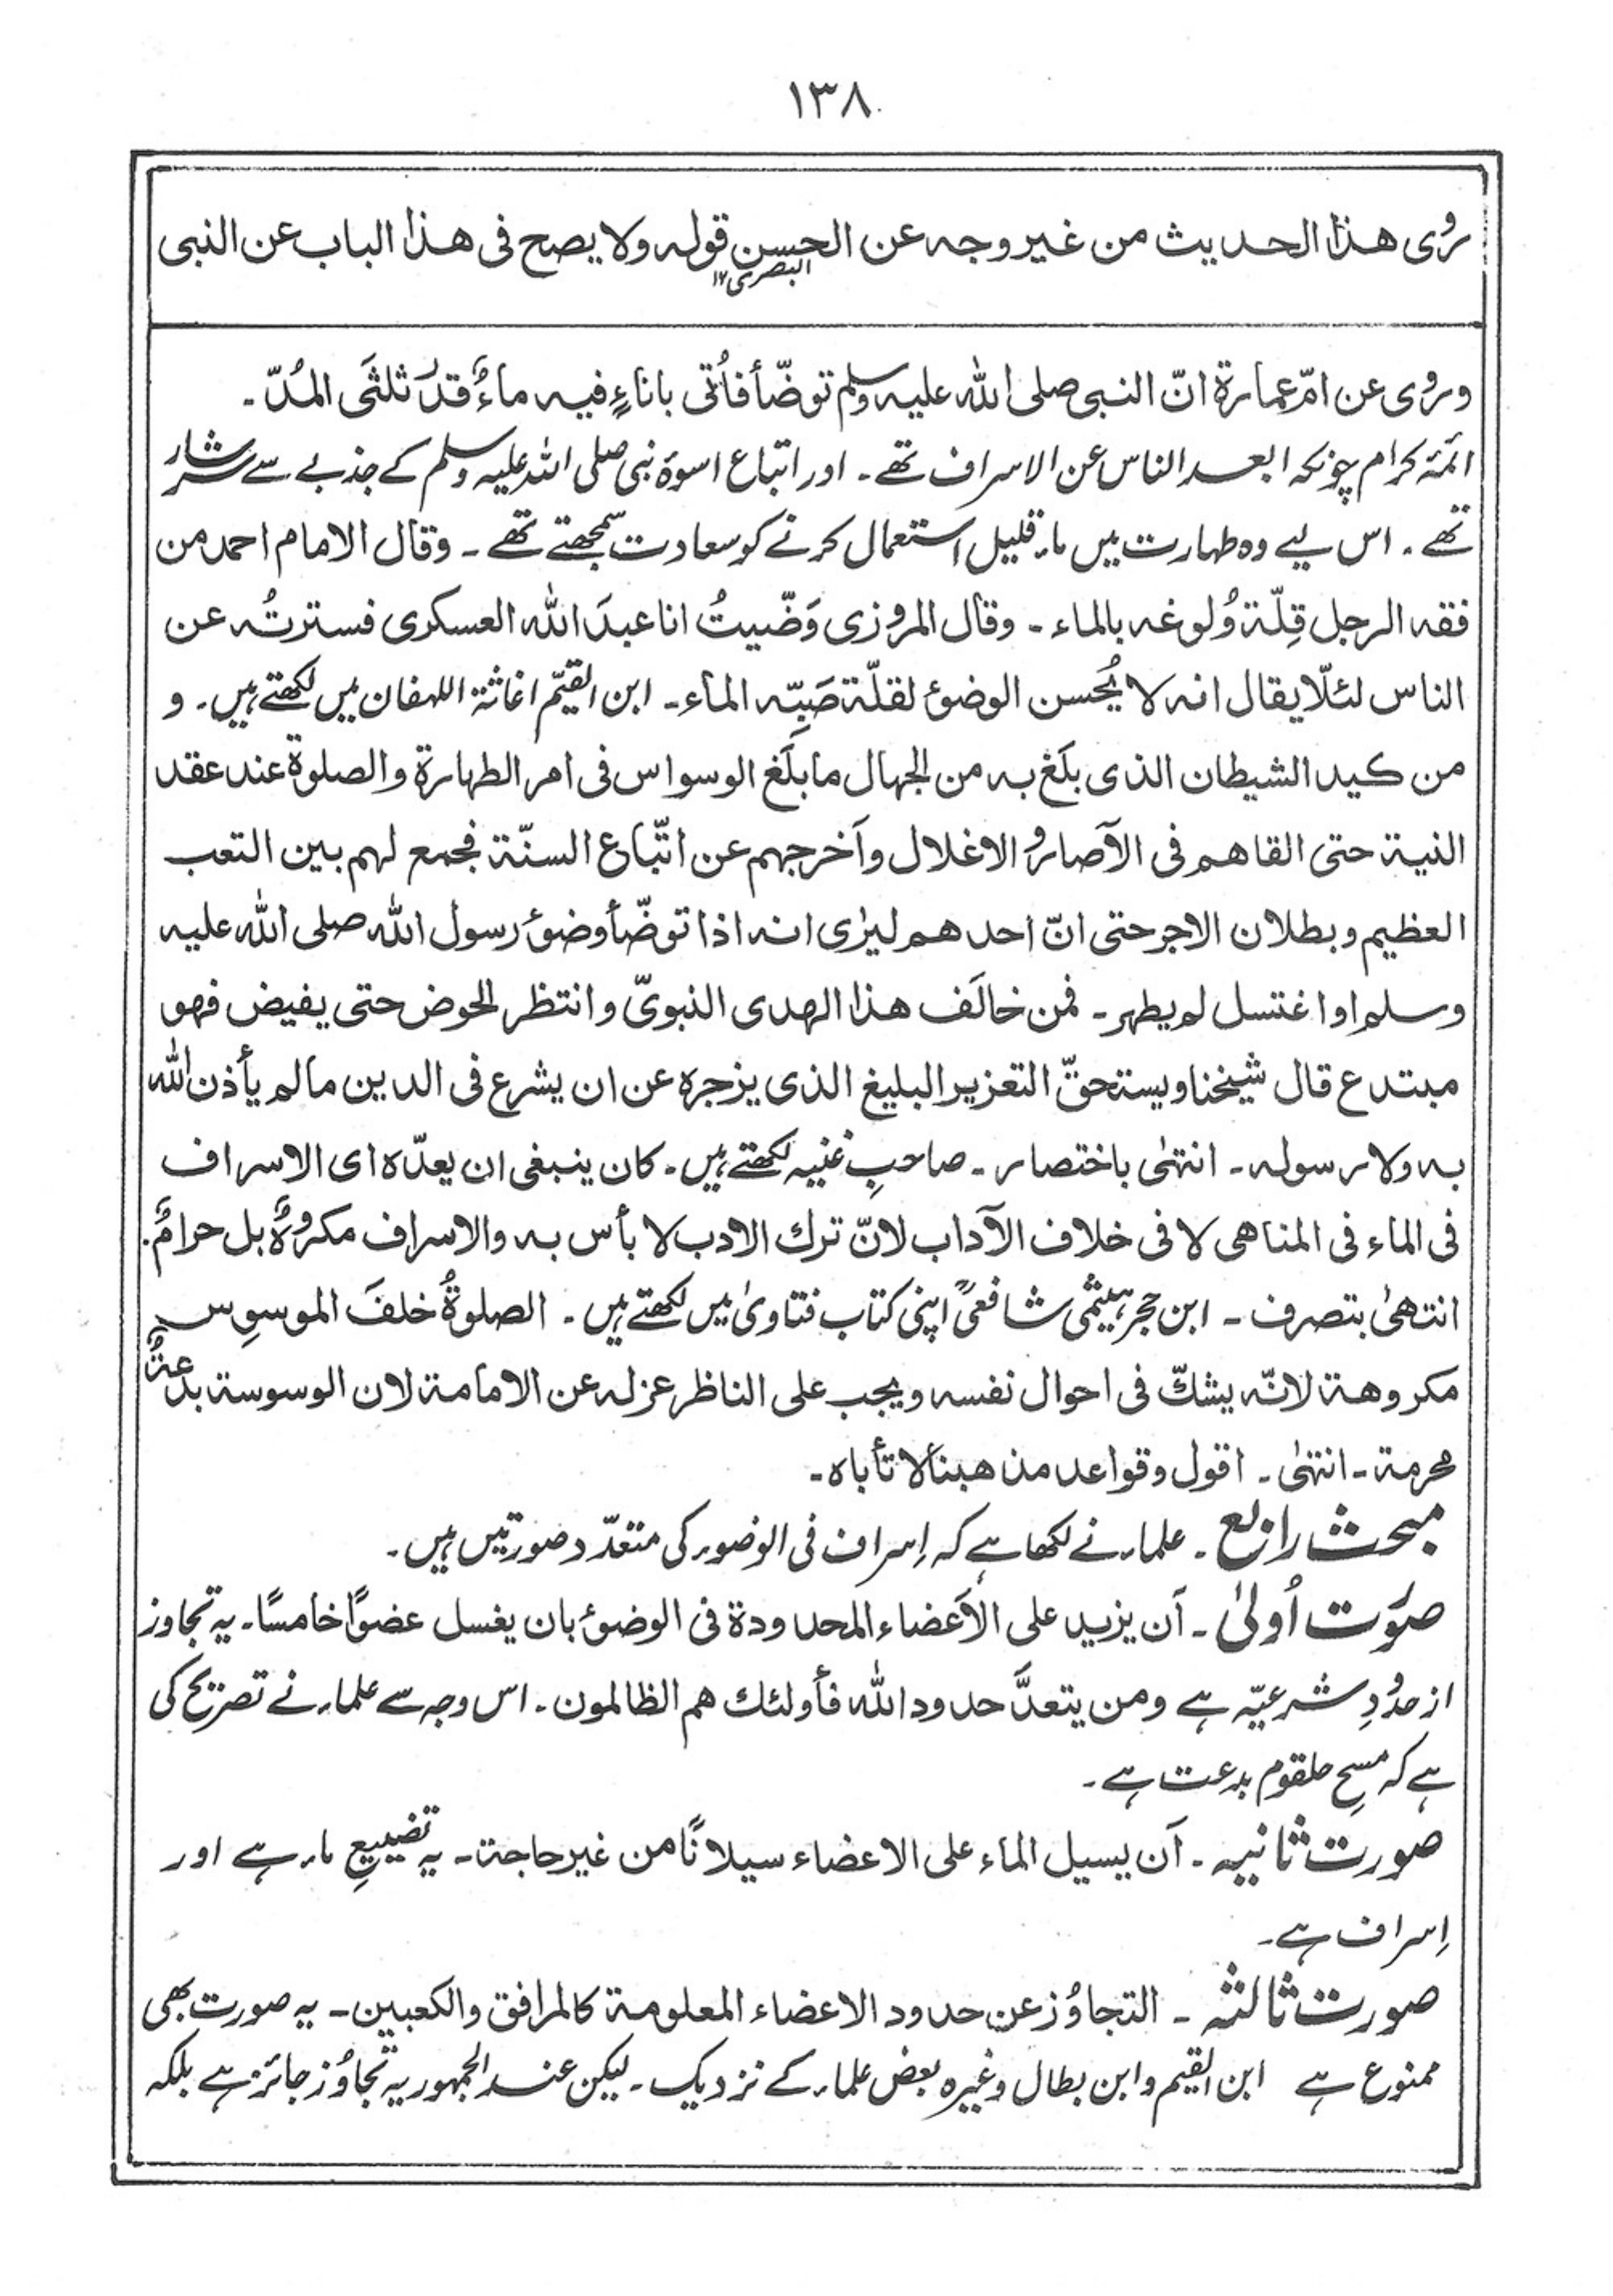 ۱۳۸
رُوی هذا الحدیث من غیر وجه عن الحسن قوله ولا یصح فی هذا الباب عن النبی
البصری ۱۲
وروی عن امّ عمارة انّ النبی صلی الله علیه وسلم توضّأ فأُتی باناءٍ فیه ماءٌ قدرُ ثلثَی المُدّ۔
ائمّہ کرام چونکہ ابعد الناس عن الاسراف تھے۔ اور اتباع اسوۂ نبی صلی اللہ علیہ وسلم کے جذبے سے سرشار
تھے۔ اس لیے وہ طہارت میں ماء قلیل استعمال کرنے کو سعادت سمجھتے تھے۔ وقال الامام احمد من
فقه الرجل قِلّة وُلوغه بالماء۔ وقال المروزی وَضّیتُ انا عبدَ الله العسکری فسترتُه عن
الناس لئلّا یقال انه لا یُحسن الوضوئ لقلّة صَبِّه الماء۔ ابن القیّم اغاثة اللهفان میں لکھتے ہیں۔ و
من کید الشیطان الذی بلَغ به من الجهال ما بلَغ الوسواس فی امر الطهارة والصلوة عند عقد
النیة حتی القاهم فی الآصار والاغلال وأخرجهم عن اتّباع السنّة فجمع لهم بین التعب
العظیم وبطلان الاجر حتی انّ احدهم لیرٰی انه اذا توضّأ وضوئَ رسول الله صلی الله علیه
وسلم او اغتسل لم یطهر۔ فمن خالَف هذا الهدی النبویّ وانتظر الحوض حتی یفیض فهو
مبتدع قال شیخنا ویستحقّ التعزیر البلیغ الذی یزجره عن ان یشرع فی الدین ما لم یأذن الله
به ولا رسوله۔ انتهٰی باختصار۔ صاحبِ غنیہ لکھتے ہیں۔ کان ینبغی ان یعدّه ای الاسراف
فی الماء فی المناهی لا فی خلاف الآداب لانّ ترك الادب لا بأس به والاسراف مکروهٌ بل حرامٌ۔
انتهیٰ بتصرف۔ ابن حجر ہیثمی شافعیؒ اپنی کتاب فتاویٰ میں لکھتے ہیں۔ الصلوةُ خلفَ الموسوِس
مکروهة لانّه یشكّ فی احوال نفسه ویجب علی الناظر عزله عن الامامة لان الوسوسة بدعةٌ
محرمة۔ انتهٰی۔ اقول وقواعد مذهبنا لا تأباه۔
مبحث رابع۔ علماء نے لکھا ہے کہ اِسراف فی الوضوء کی متعدّد صورتیں ہیں۔
صورت اُولیٰ۔ أن یزید علی الأعضاء المحدودة فی الوضوئ بان یغسل عضوًا خامسًا۔ یہ تجاوز
از حدُودِ شرعیّہ ہے ومن یتعدَّ حدود الله فأولئك هم الظالمون۔ اس وجہ سے علماء نے تصریح کی
ہے کہ مسحِ حلقوم بدعت ہے۔
صورت ثانیہ۔ أن یسیل الماء علی الاعضاء سیلانًا من غیر حاجة۔ یہ تضییعِ ماء ہے اور
اِسراف ہے۔
صورت ثالثہ۔ التجاوُز عن حدود الاعضاء المعلومة کالمرافق والکعبین۔ یہ صورت بھی
ممنوع ہے ابن القیم وابن بطال وغیرہ بعض علماء کے نزدیک۔ لیکن عند الجمہور یہ تجاوُز جائز ہے بلکہ